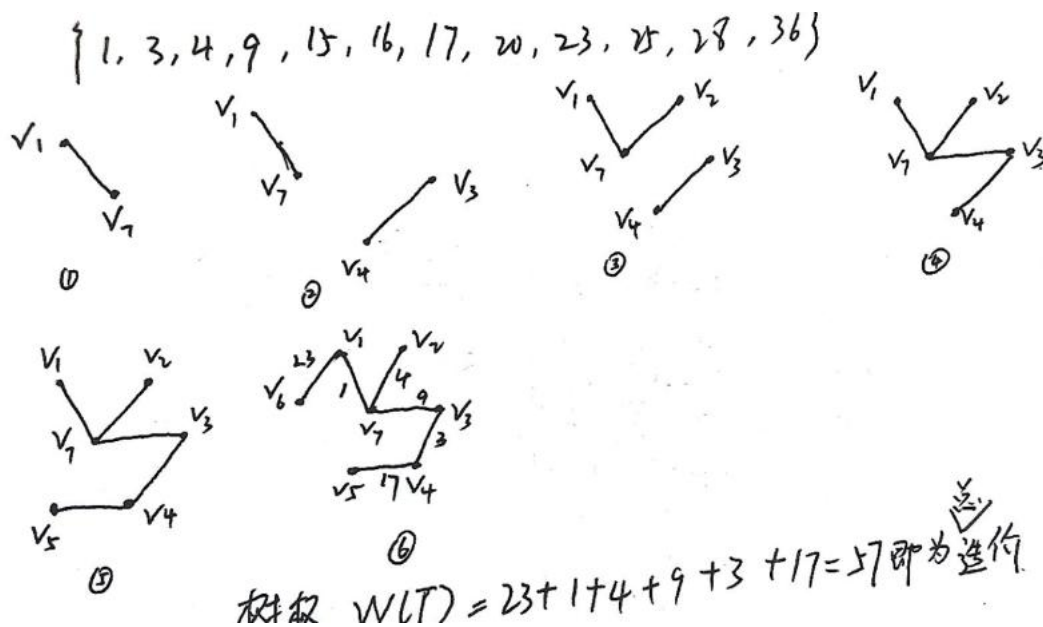 {1, 3, 4, 9, 15, 16, 17, 20, 23, 25, 28, 36}
V₁ V₇
①
V₁ V₇ V₃ V₄
②
V₁ V₂ V₇ V₃ V₄
③
V₁ V₂ V₇ V₃ V₄
④
V₁ V₂ V₇ V₃ V₅ V₄
⑤
23 V₁ V₂ V₆ 1 4 9 V₇ V₃ 3 V₅ 17 V₄
⑥
总
树权 W(T) = 23+1+4+9+3+17=57即为造价